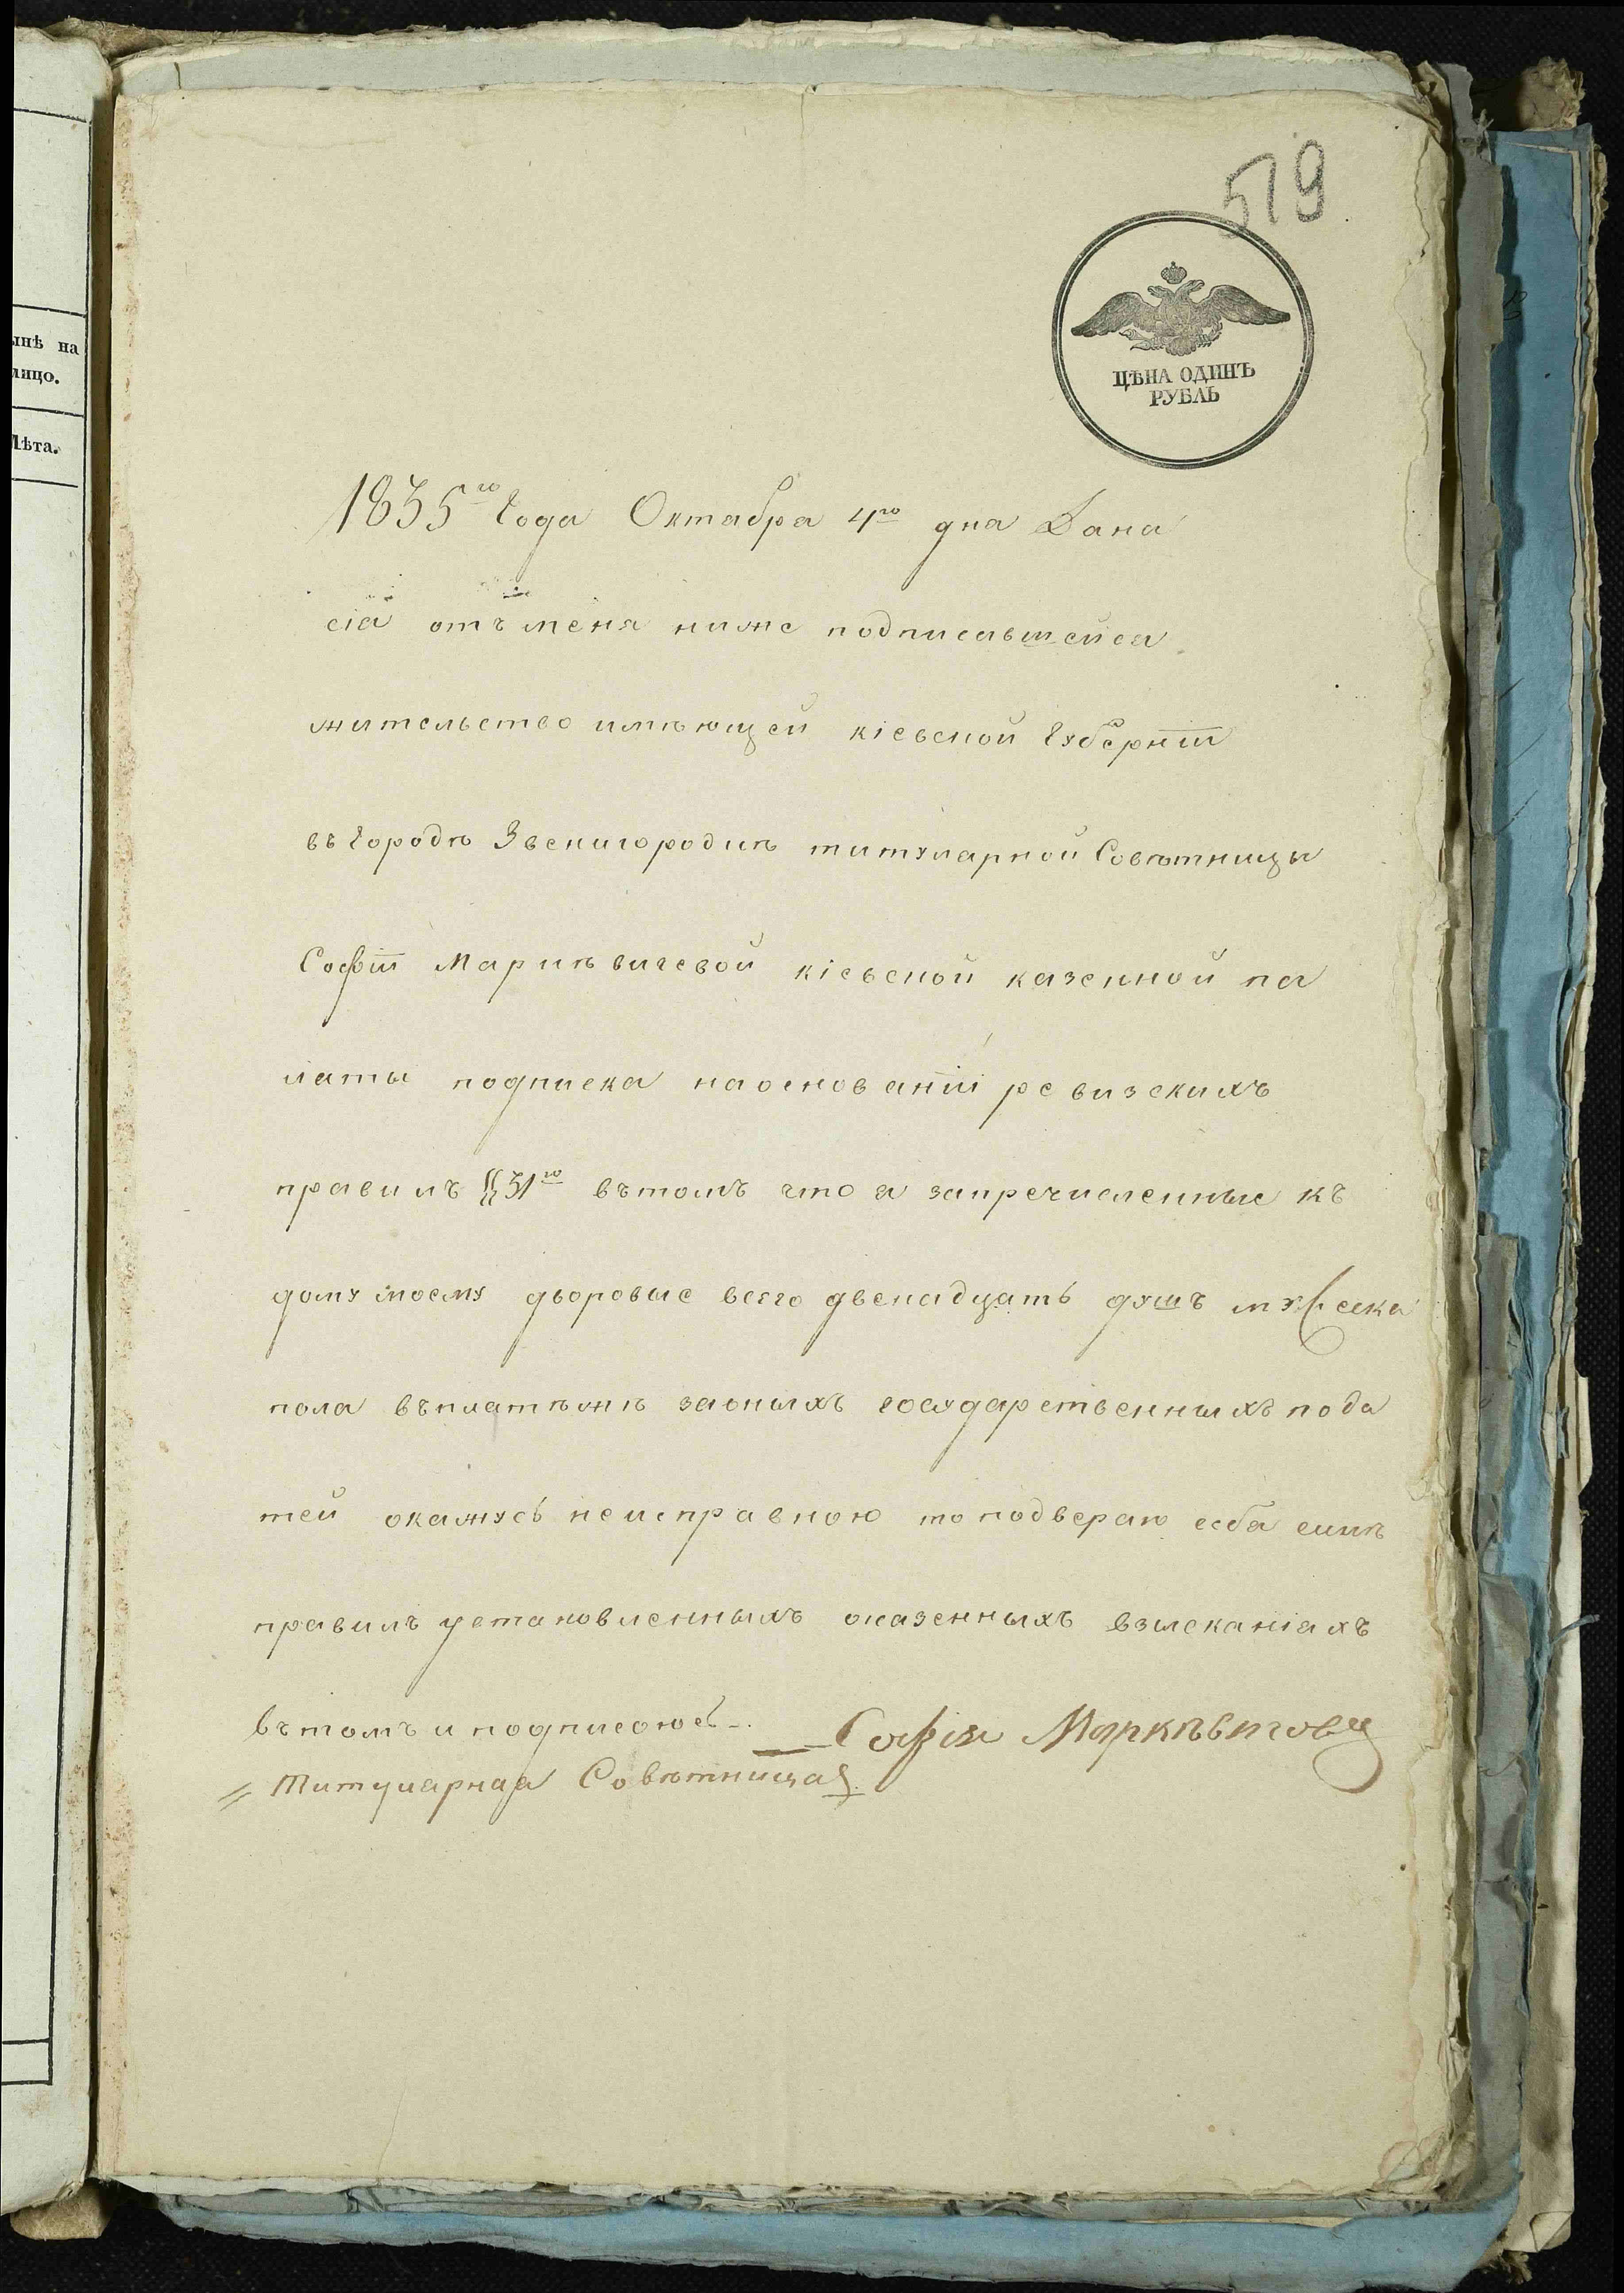 519
ЦѢНА ОДИНЪ
РУБЛЬ
1835го Года Октабра 4го дна Дана
сіа отъ меня ниже подписавшейса
жительство имѣющей кіевской Губерніи
въ Городѣ Звенигородкѣ титуларной Совѣтницы
Софіи Маркѣвичевой кіевской казенной па
латы подписка наоснованіи ревизскихъ
правилъ §31го вътомъ что а запречисленные къ
дому моему дворовые всего двенадцать душъ мужеска
пола въплатѣжѣ заоныхъ государственныхъ пода
тей окажусь неисправною то подвергаю себа силѣ
правилъ установленныхъ оказенныхъ взысканіахъ
вътомъ и подписоюсь Софія Маркѣвичова
Титулярная Совѣтница
нѣ на
лицо.
Лѣта.